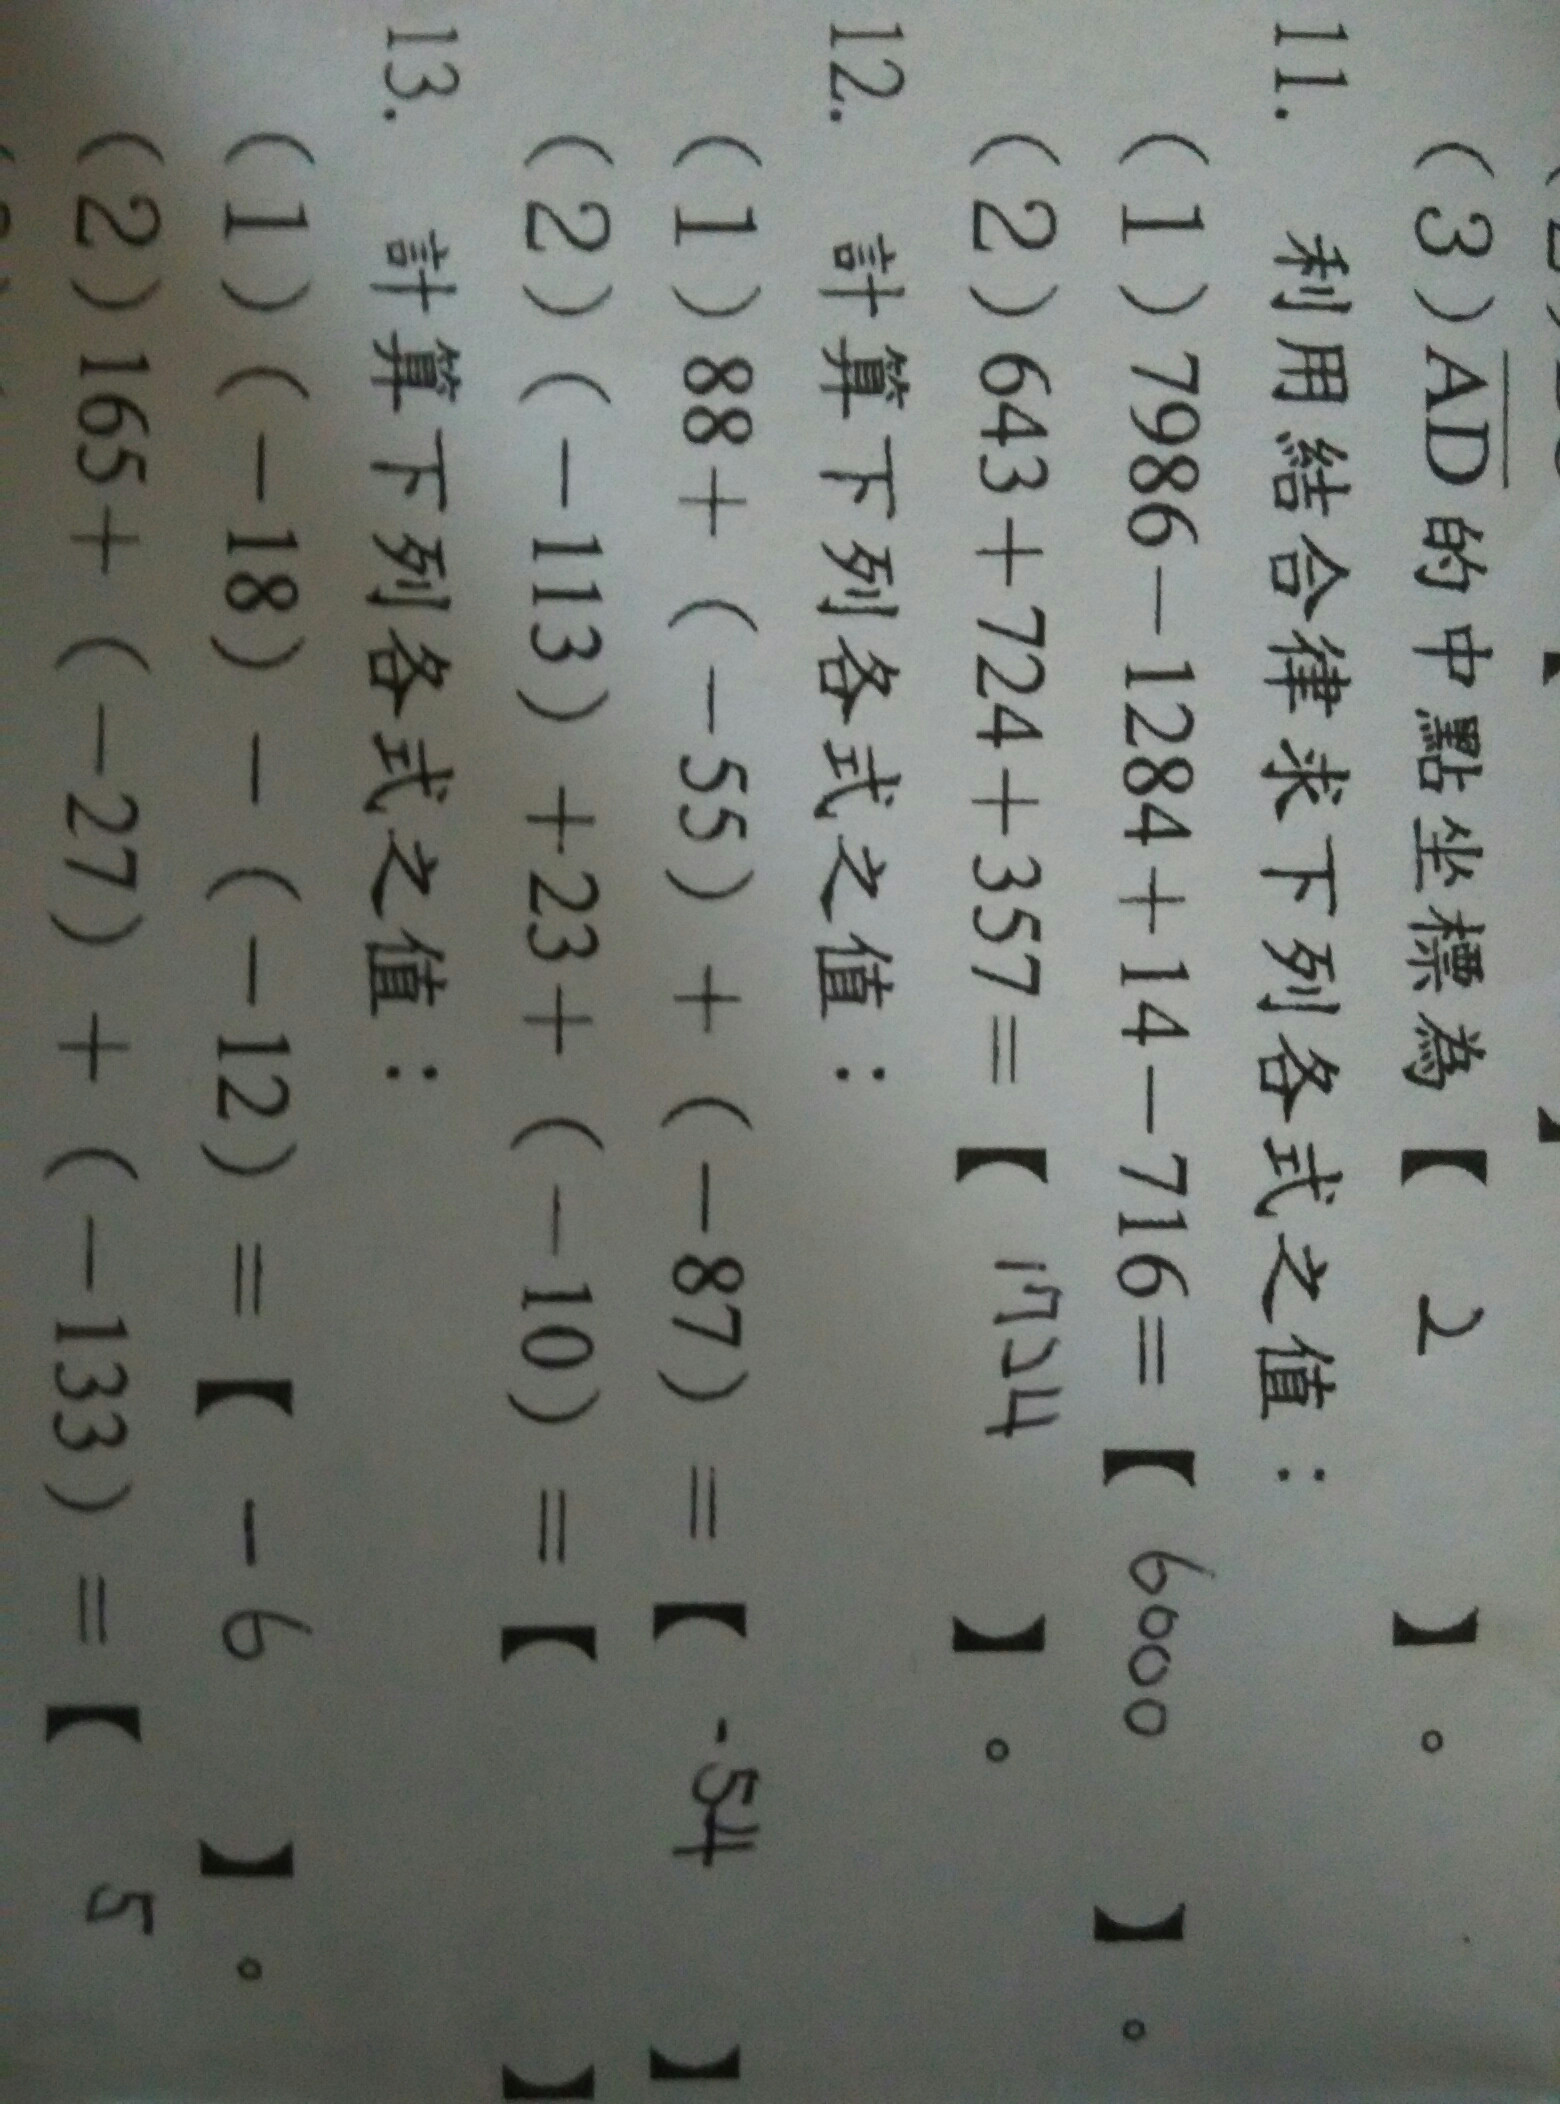 (3) AD的中點坐標為【 2 】。
11. 利用結合律求下列各式之值：
(1) 7986－1284＋14－716＝【 6000 】。
(2) 643＋724＋357＝【 1724 】。
12. 計算下列各式之值：
(1) 88＋(－55)＋(－87)＝【 -54 】
(2) (－113)＋23＋(－10)＝【 】
13. 計算下列各式之值：
(1) (－18)－(－12)＝【 -6 】。
(2) 165＋(－27)＋(－133)＝【 5